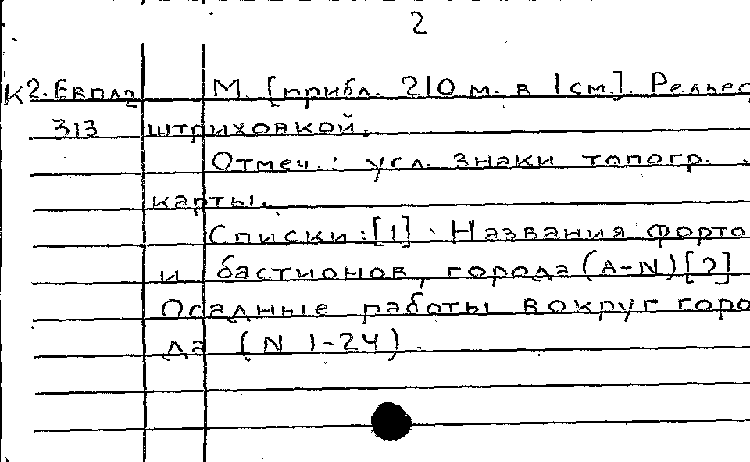 2
К2.Евпл2 М. [прибл. 210 м. в 1 см]. Рельеф
313 штриховкой.
Отмеч.: усл. знаки топогр.
карты.
Списки:[1] Названия форто
и бастионов, города (A-N)[2]
Осадные работы вокруг горо
да (N 1-24).